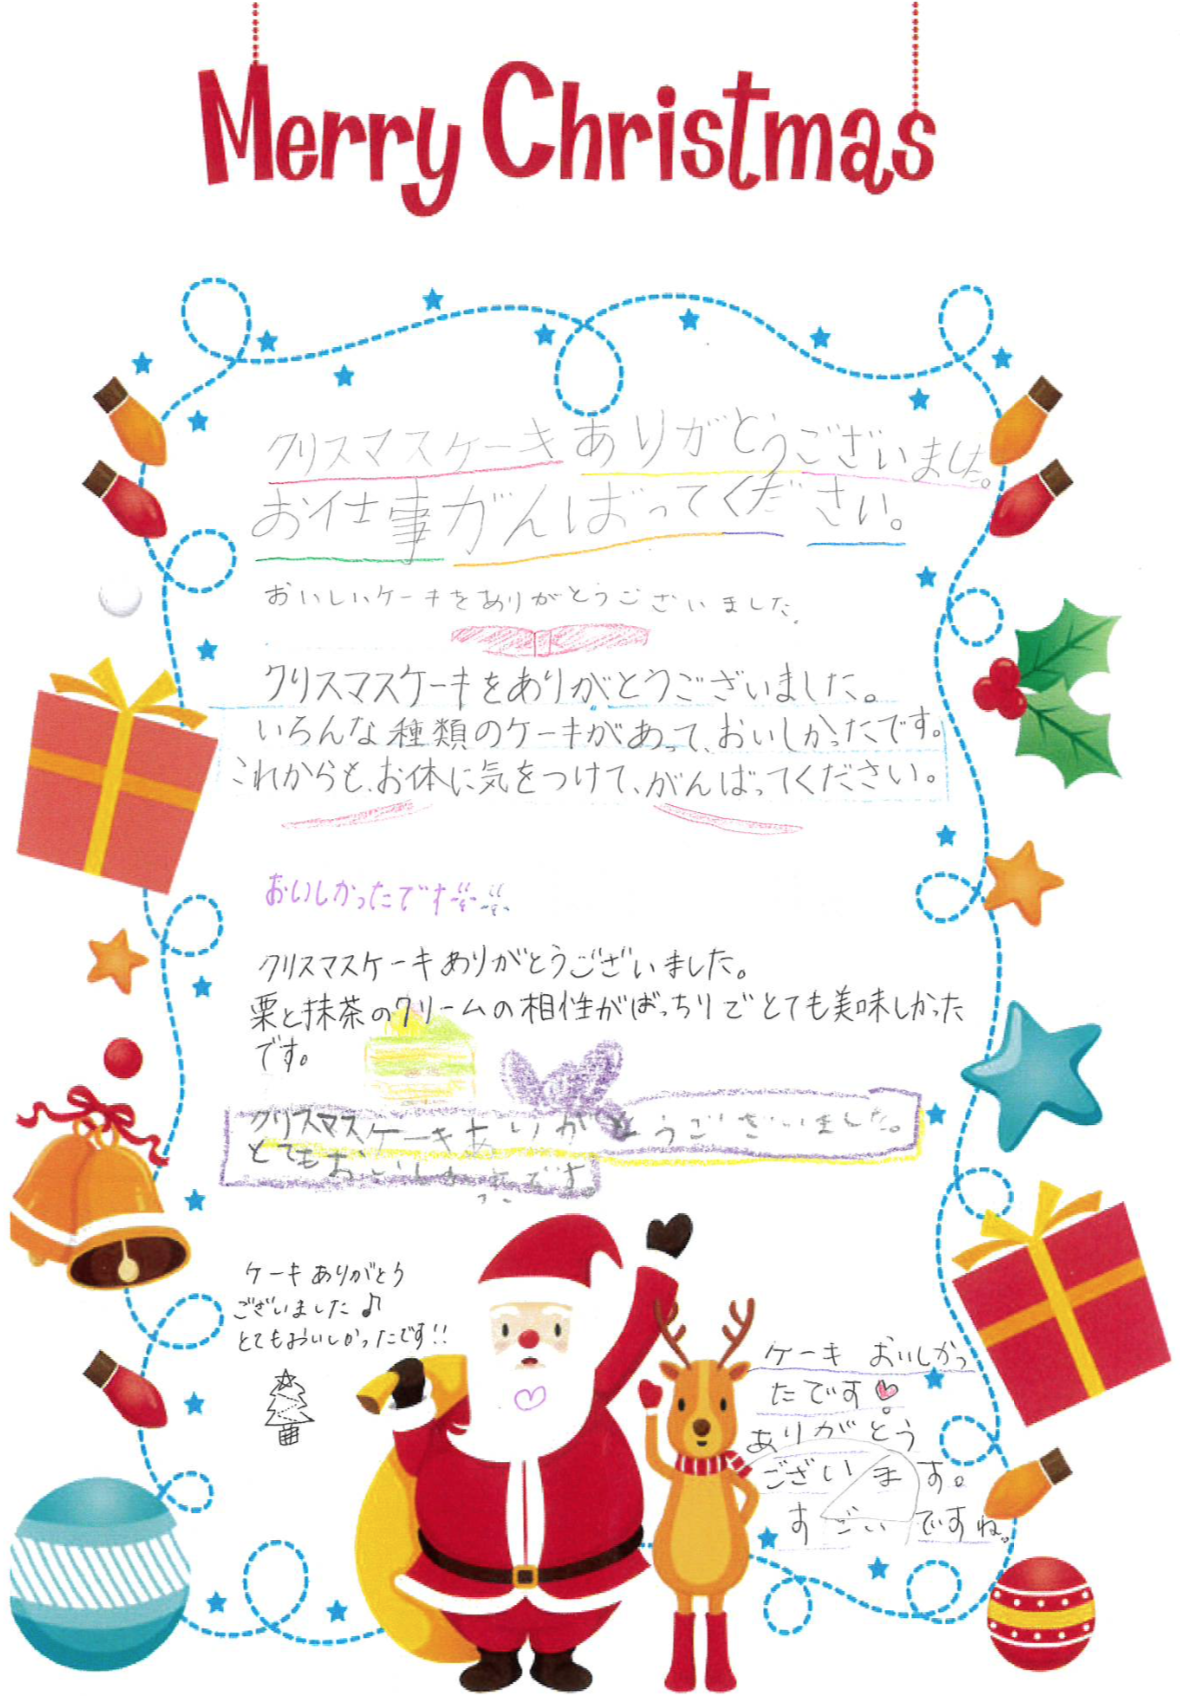 Merry Christmas
クリスマスケーキありがとうございました。
お仕事がんばってください。
おいしいケーキをありがとうございました。
クリスマスケーキをありがとうございました。
いろんな種類のケーキがあって、おいしかったです。
これからも、お体に気をつけて、がんばってください。
おいしかったです
クリスマスケーキありがとうございました。
栗と抹茶のクリームの相性がばっちりでとても美味しかった
です。
クリスマスケーキありがとうございました。
とてもおいしかったです。
ケーキありがとう
ございました♪
とてもおいしかったです!!
ケーキ おいしかっ
たです♡
ありがとう
ございます。
すごいですね。